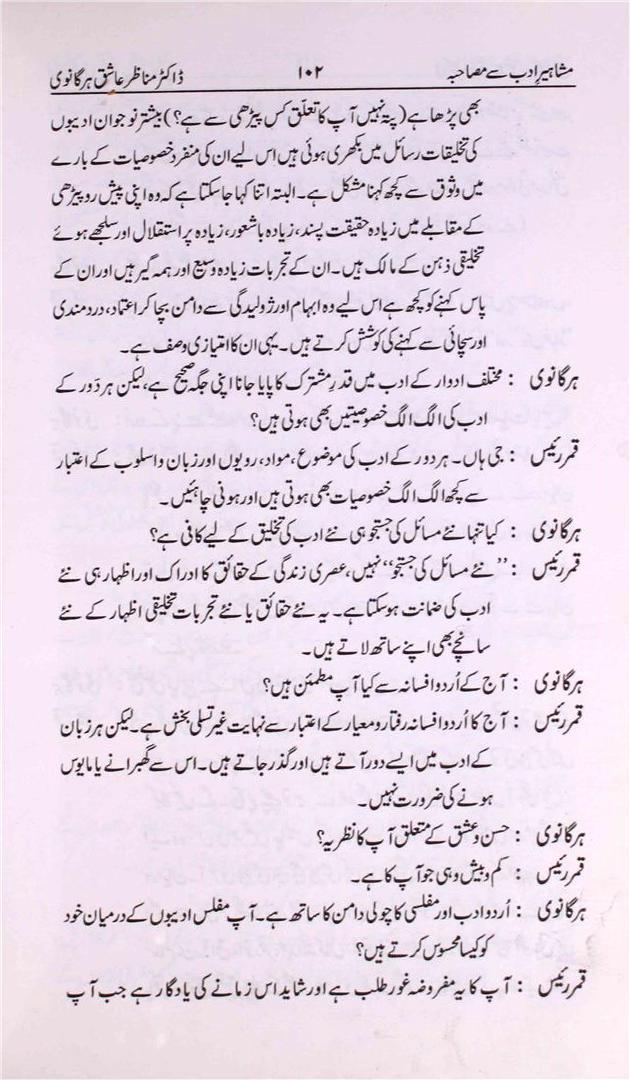 مشاہیرِ ادب سے مصاحبہ ۱۰۲ ڈاکٹر مناظر عاشق ہرگانوی
بھی پڑھا ہے (پتہ نہیں آپ کا تعلّق کس پیڑھی سے ہے؟) بیشتر نوجوان ادیبوں
کی تخلیقات رسائل میں بکھری ہوئی ہیں اس لیے ان کی منفرد خصوصیات کے بارے
میں وثوق سے کچھ کہنا مشکل ہے۔ البتہ اتنا کہا جاسکتا ہے کہ وہ اپنی پیش رو پیڑھی
کے مقابلے میں زیادہ حقیقت پسند، زیادہ باشعور، زیادہ پر استقلال اور سلجھے ہوئے
تخلیقی ذہن کے مالک ہیں۔ ان کے تجربات زیادہ وسیع اور ہمہ گیر ہیں اور ان کے
پاس کہنے کو کچھ ہے اس لیے وہ ابہام اور ژولیدگی سے دامن بچا کر اعتماد، دردمندی
اور سچائی سے کہنے کی کوشش کرتے ہیں۔ یہی ان کا امتیازی وصف ہے۔
ہرگانوی : مختلف ادوار کے ادب میں قدرِ مشترک کا پایا جانا اپنی جگہ صحیح ہے، لیکن ہر دَور کے
ادب کی الگ الگ خصوصیتیں بھی ہوتی ہیں؟
قمر رئیس : جی ہاں۔ ہر دور کے ادب کی موضوع، مواد، رویوں اور زبان و اسلوب کے اعتبار
سے کچھ الگ الگ خصوصیات بھی ہوتی ہیں اور ہونی چاہئیں۔
ہرگانوی : کیا تنہا نئے مسائل کی جستجو ہی نئے ادب کی تخلیق کے لیے کافی ہے؟
قمر رئیس : ’’نئے مسائل کی جستجو‘‘ نہیں، عصری زندگی کے حقائق کا ادراک اور اظہار ہی نئے
ادب کی ضمانت ہوسکتا ہے۔ یہ نئے حقائق یا نئے تجربات تخلیقی اظہار کے نئے
سانچے بھی اپنے ساتھ لاتے ہیں۔
ہرگانوی : آج کے اُردو افسانہ سے کیا آپ مطمئن ہیں؟
قمر رئیس : آج کا اُردو افسانہ رفتار و معیار کے اعتبار سے نہایت غیر تسلی بخش ہے۔ لیکن ہر زبان
کے ادب میں ایسے دور آتے ہیں اور گذر جاتے ہیں۔ اس سے گھبرانے یا مایوس
ہونے کی ضرورت نہیں۔
ہرگانوی : حسن و عشق کے متعلق آپ کا نظریہ؟
قمر رئیس : کم و بیش وہی جو آپ کا ہے۔
ہرگانوی : اُردو ادب اور مفلسی کا چولی دامن کا ساتھ ہے۔ آپ مفلس ادیبوں کے درمیان خود
کو کیسا محسوس کرتے ہیں؟
قمر رئیس : آپ کا یہ مفروضہ غور طلب ہے اور شاید اس زمانے کی یادگار ہے جب آپ